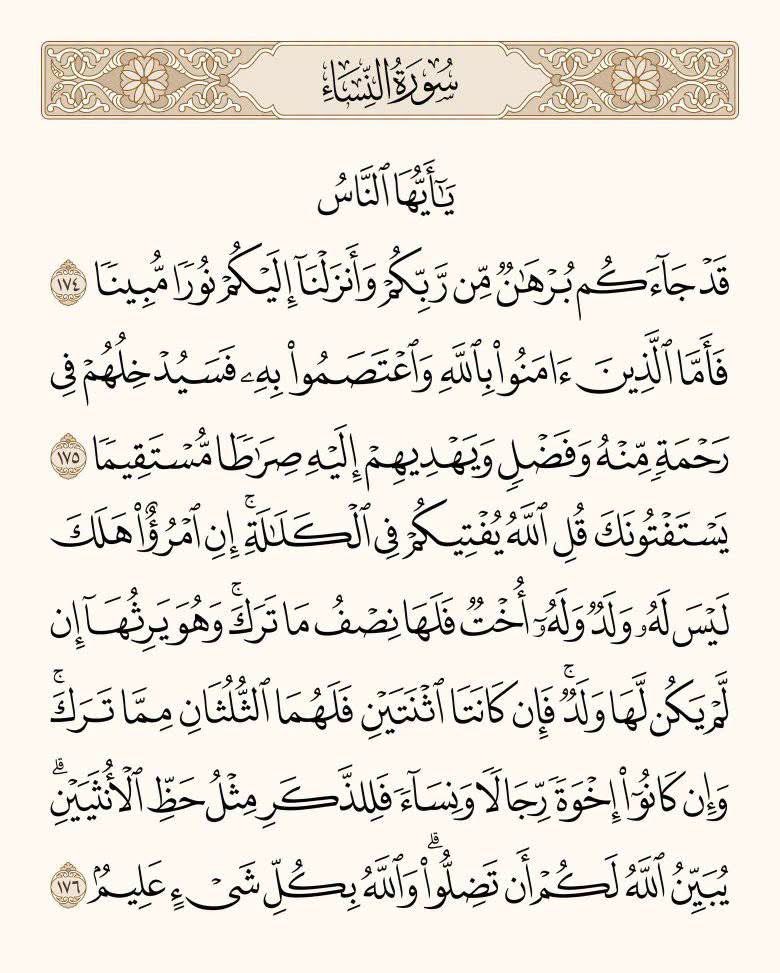 سُورَةُ النِّسَاءِ
يَـٰٓأَيُّهَا ٱلنَّاسُ
قَدْ جَآءَكُم بُرْهَـٰنٌ مِّن رَّبِّكُمْ وَأَنزَلْنَآ إِلَيْكُمْ نُورًا مُّبِينًا ١٧٤
فَأَمَّا ٱلَّذِينَ ءَامَنُوا۟ بِٱللَّهِ وَٱعْتَصَمُوا۟ بِهِۦ فَسَيُدْخِلُهُمْ فِى
رَحْمَةٍ مِّنْهُ وَفَضْلٍ وَيَهْدِيهِمْ إِلَيْهِ صِرَٰطًا مُّسْتَقِيمًا ١٧٥
يَسْتَفْتُونَكَ قُلِ ٱللَّهُ يُفْتِيكُمْ فِى ٱلْكَلَـٰلَةِ ۚ إِنِ ٱمْرُؤٌا۟ هَلَكَ
لَيْسَ لَهُۥ وَلَدٌ وَلَهُۥٓ أُخْتٌ فَلَهَا نِصْفُ مَا تَرَكَ ۚ وَهُوَ يَرِثُهَآ إِن
لَّمْ يَكُن لَّهَا وَلَدٌ ۚ فَإِن كَانَتَا ٱثْنَتَيْنِ فَلَهُمَا ٱلثُّلُثَانِ مِمَّا تَرَكَ ۚ
وَإِن كَانُوٓا۟ إِخْوَةً رِّجَالًا وَنِسَآءً فَلِلذَّكَرِ مِثْلُ حَظِّ ٱلْأُنثَيَيْنِ ۗ
يُبَيِّنُ ٱللَّهُ لَكُمْ أَن تَضِلُّوا۟ ۗ وَٱللَّهُ بِكُلِّ شَىْءٍ عَلِيمٌۢ ١٧٦